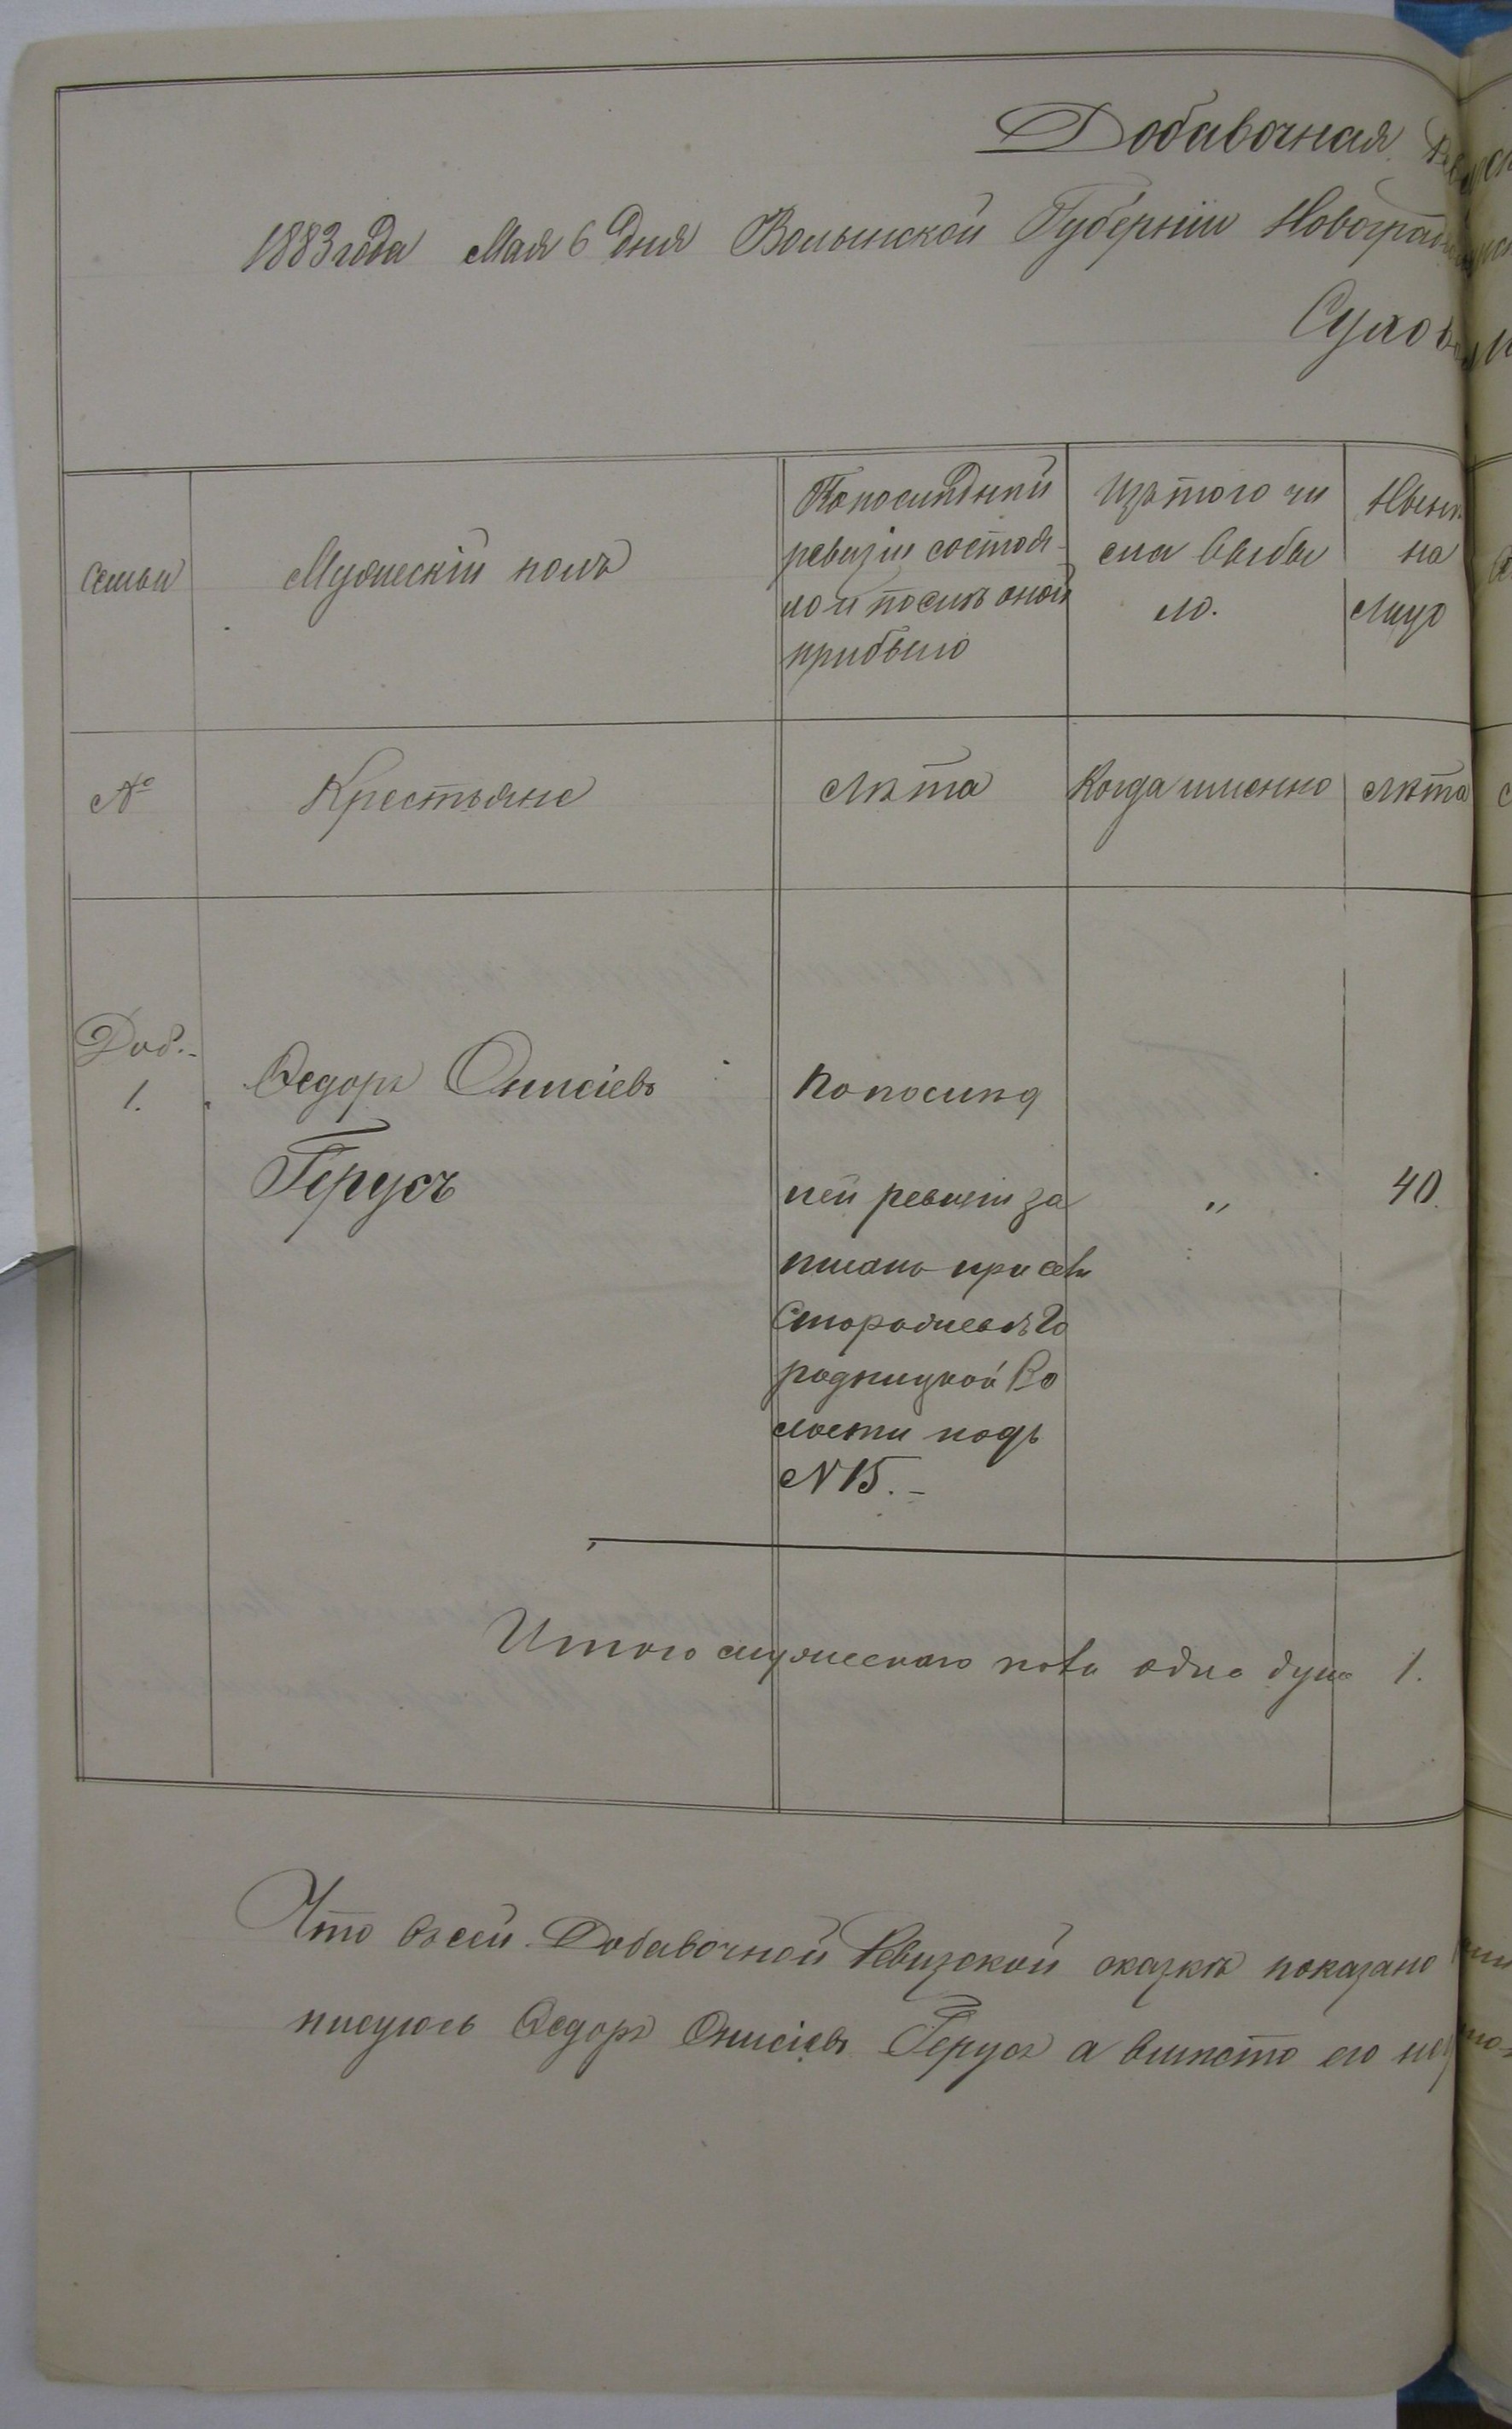 Добавочная
1883 года Мая 6 дня Волынской Губерніи Новоград
Сухов
Семьи
Мужескій полъ
По последней
ревизіи состоя-
ло и послѣ оной
прибыло
Изъ того чи
сла выбы
ло.
Нынѣ
на
лицо
№
Крестьяне
Лѣта
Когда именно
Лѣта
Доб.-
1.
Ѳедоръ Онисіевъ
Герусъ
По послѣд
ней ревизіи за
писанъ при селѣ
Сторожевѣ Го
родницкой Во
лости подъ
N 15.-
"
40
Итого мужескаго пола одна душа 1.
Что въ сей Добавочной Ревизской сказкѣ показано
писуюсь Ѳедоръ Онисіевъ Герусъ а вмѣсто его не